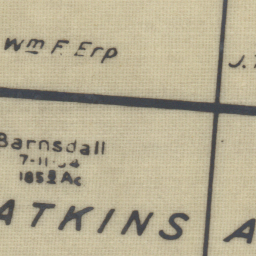 Wm F. Erp
J.
Barnsdall
7-11-34
185 Ac
ATKINS A